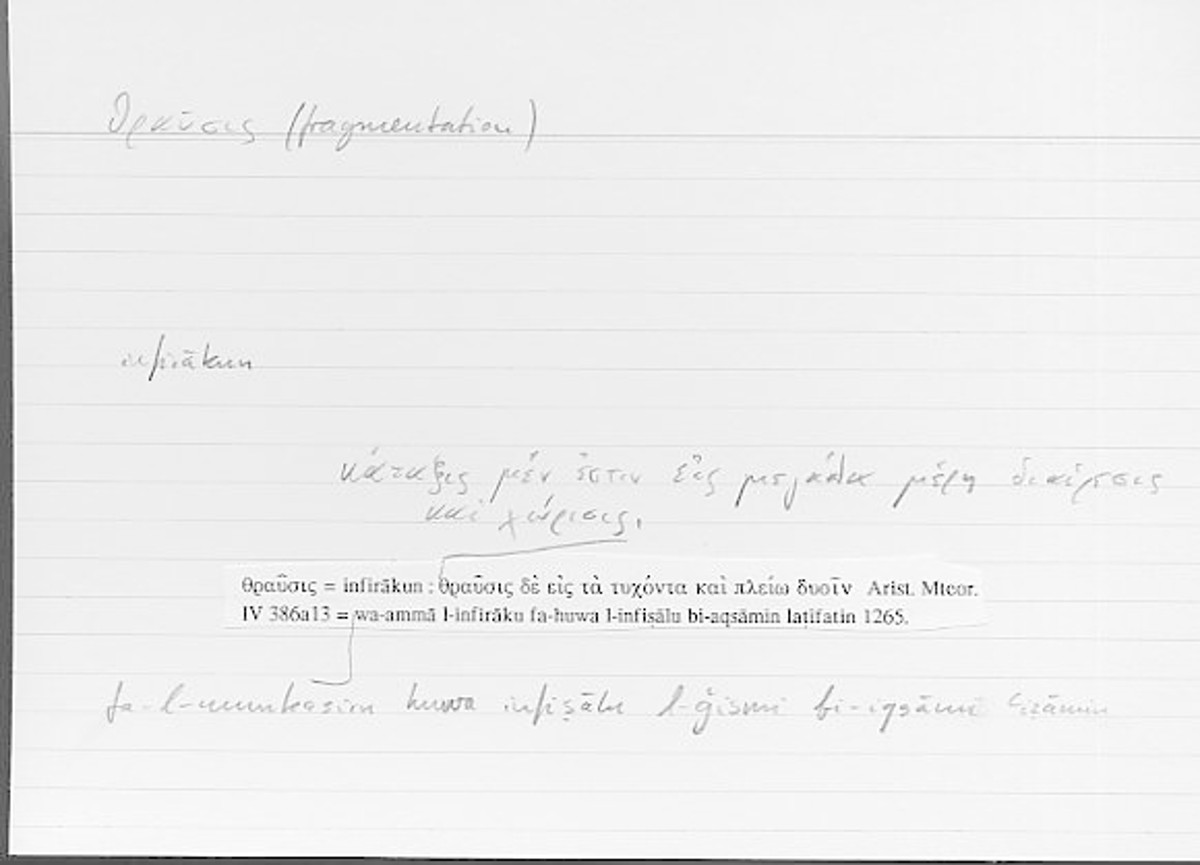 θραῦσις (fragmentation)
infirākun
κάταξις μέν ἐστιν εἰς μεγάλα μέρη διαίρεσις
καὶ χώρισις,
θραῦσις = infirākun : θραῦσις δὲ εἰς τὰ τυχόντα καὶ πλείω δυοῖν Arist. Mteor.
IV 386a13 = wa-ammā l-infirāku fa-huwa l-infiṣālu bi-aqsāmin laṭīfatin 1265.
fa-l-munkasiru huwa infiṣālu l-ǧismi bi-iqsāmi ʿiẓāmin